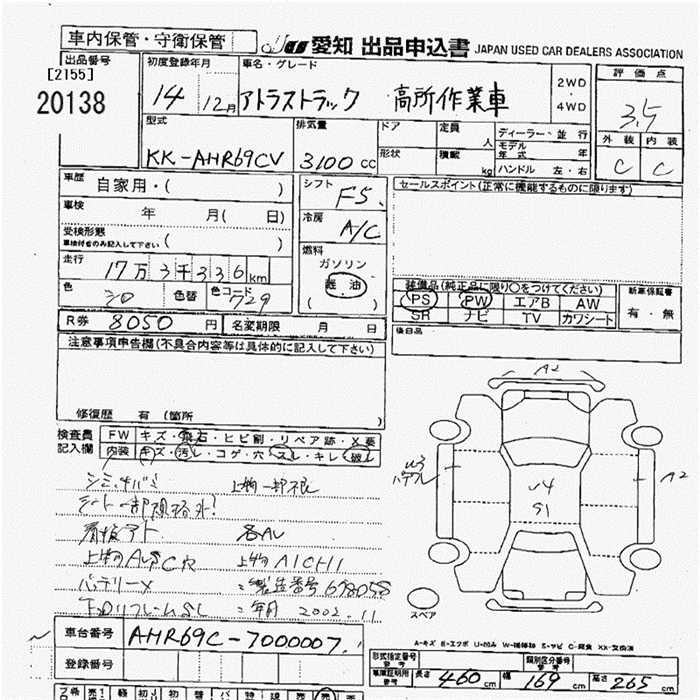 車内保管・守衛保管
JU 愛知 出品申込書 JAPAN USED CAR DEALERS ASSOCIATION
出品番号
[2155]
20138
初度登録年月
14 12月
車名・グレード
アトラストラック 高所作業車
2WD
・
4WD
評価点
3.5
外装 内装
C C
型式
KK-AHR69CV
排気量
3100 CC
ドア
形状
定員 人
積載 kg
ディーラー・並行
モデル年式 年
ハンドル 左・右
車歴 自家用・( )
車検 年 月( 日)
受検形態
車検付きのみ記入して下さい ( )
走行 17万3千336km
色 シロ 色替 色コード 729
シフト F5
冷房 A/C
燃料
ガソリン
軽油
( )
セールスポイント(正常に機能するものに限ります)
装備品(純正品に限り○をつけてください)
PS PW エアB AW
SR ナビ TV カワシート
新車保証書
有・無
後日品
R券 8050円 名変期限 月 日
注意事項申告欄(不具合内容等は具体的に記入して下さい)
修復歴 有 (箇所 )
検査員
記入欄
FW キズ・飛石・ヒビ割・リペア跡・X要
内装 キズ・汚レ・コゲ・穴・スレ・キレ・破レ
上物一部不良
シート一部規格外!
看板アト 各AU
上物AICHI
バッテリーX 製造番号 678058
年月 2002.11
A2
U3
A2
U4
S1
スペア
A-キズ
車台番号 AHR69C-7000007
登録番号
形式指定番号
参考
類別区分番号
参考
車庫証明用
参考
長さ 460cm 幅 169cm 高さ 265cm